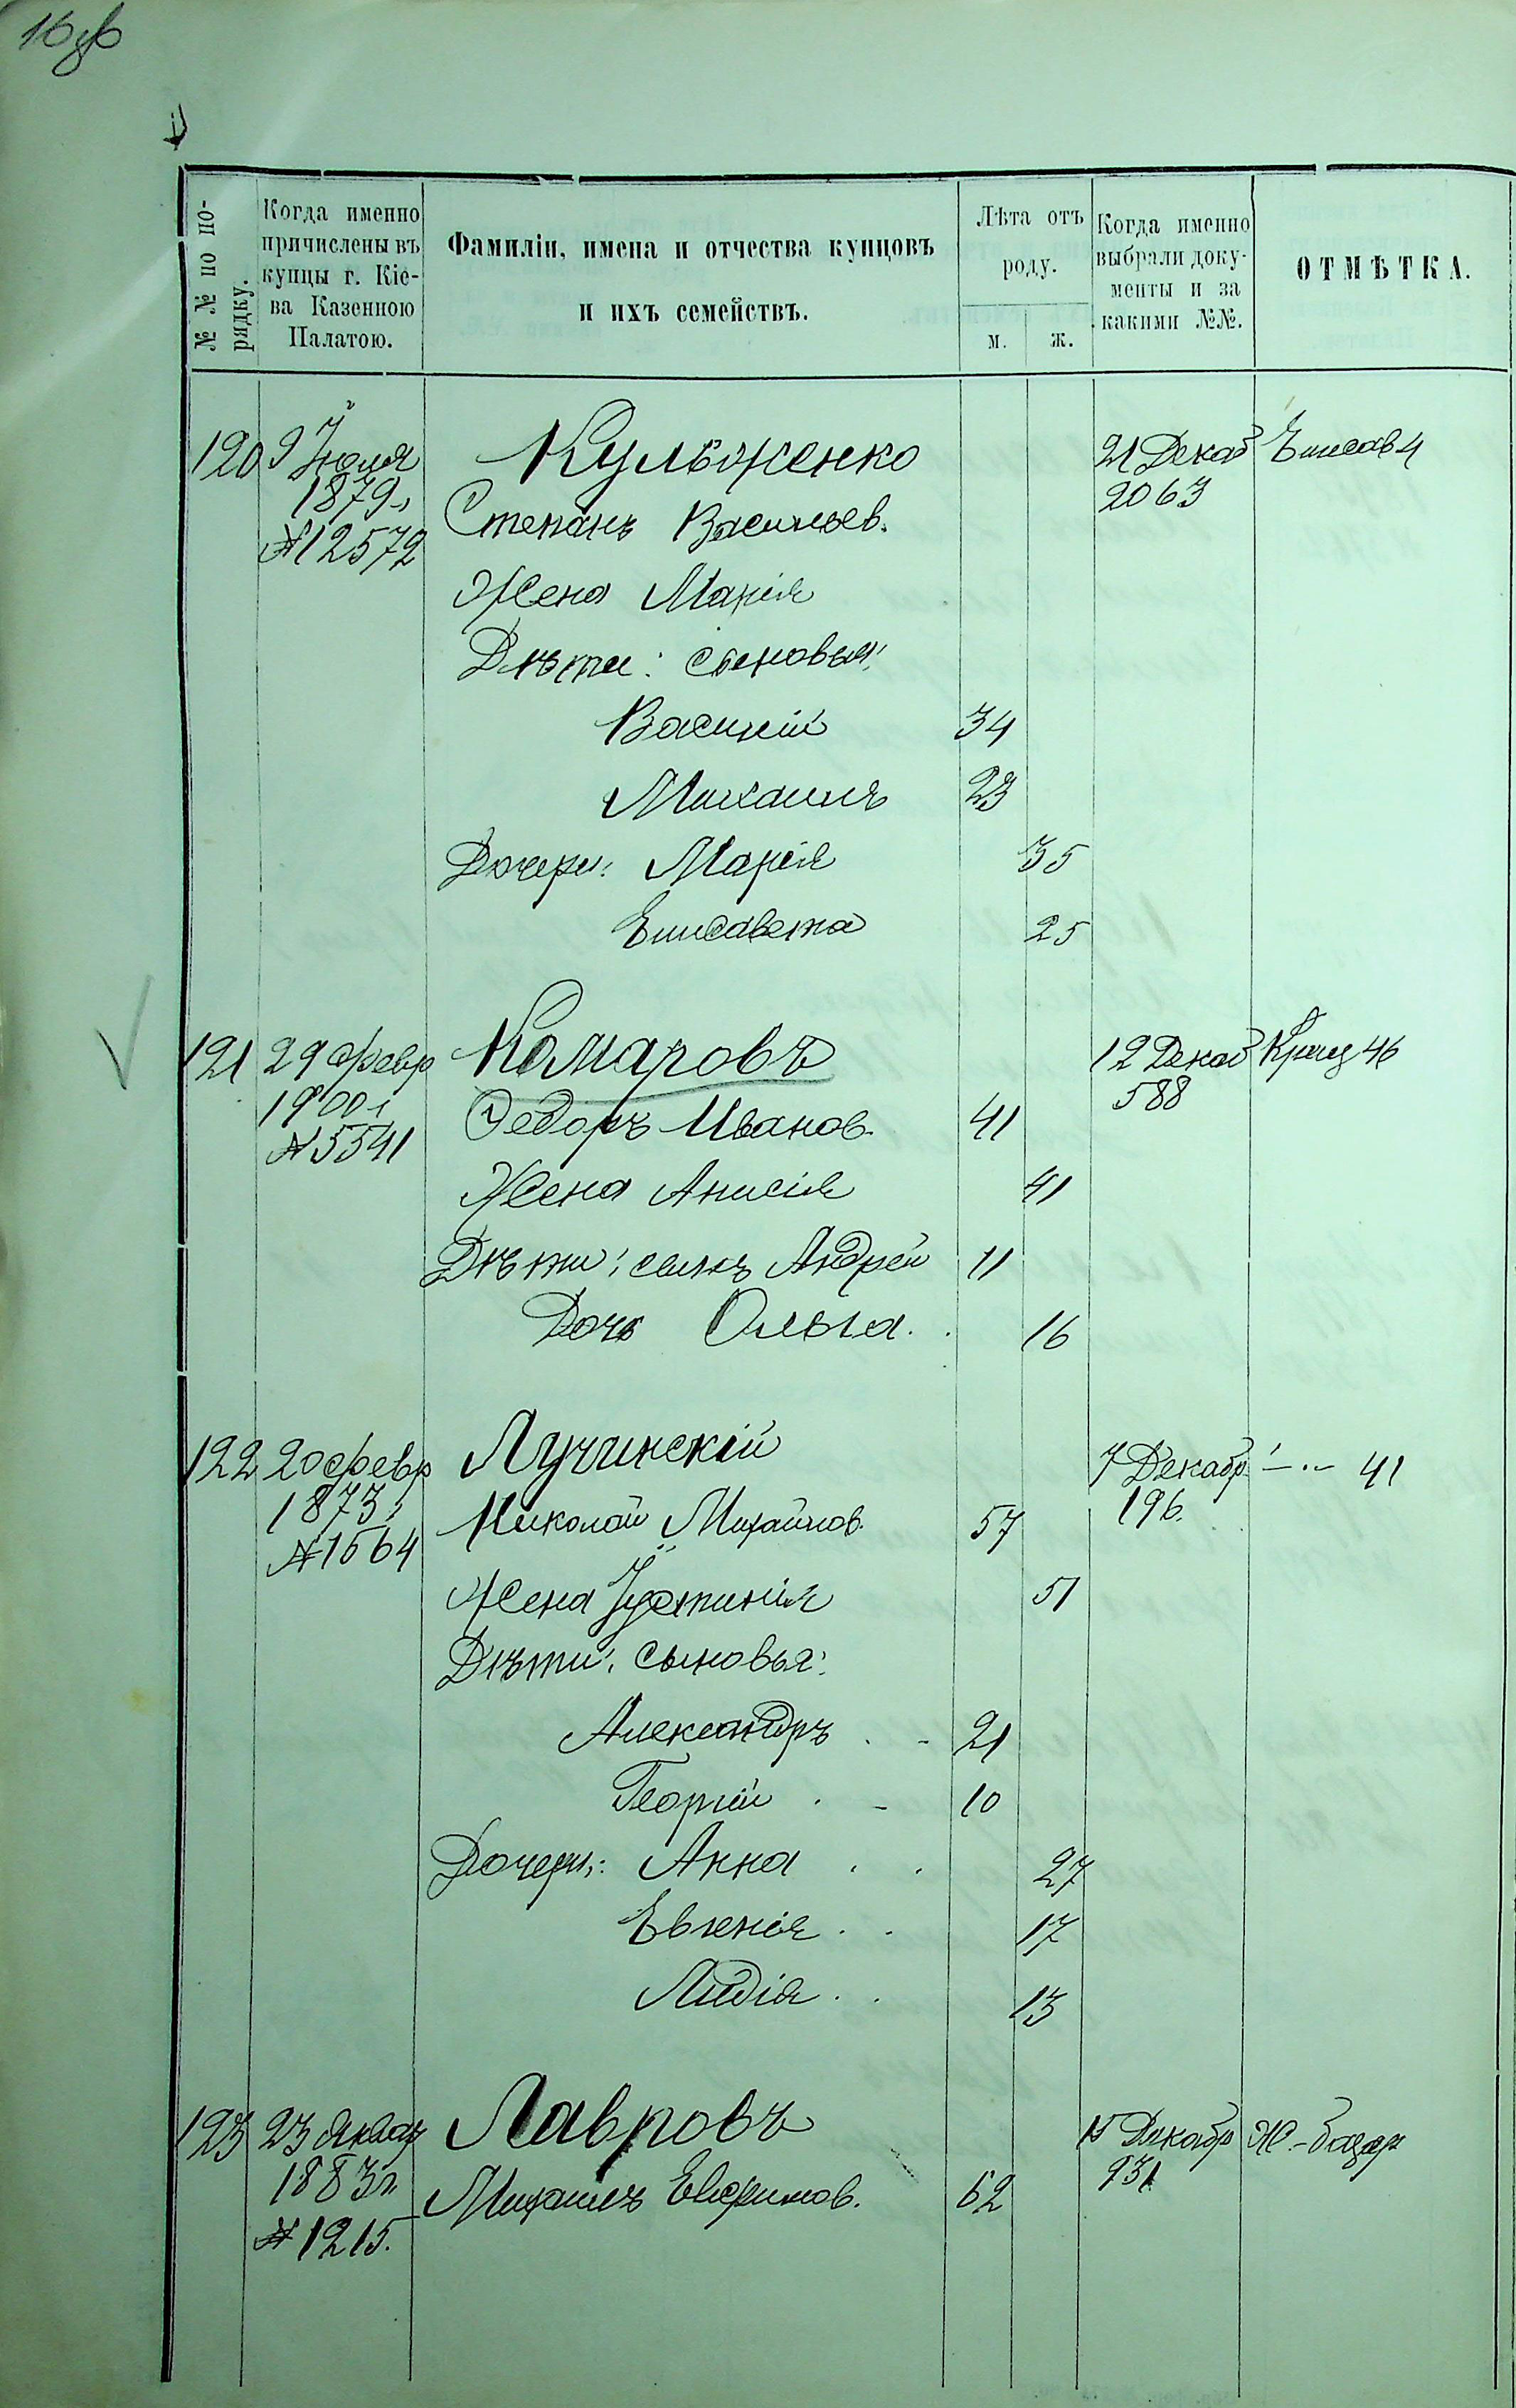 № № по по-
рядку.
Когда именно
причислены въ
купцы г. Кіе-
ва Казенною
Палатою.
Фамиліи, имена и отчества купцовъ
и ихъ семействъ.
Лѣта отъ
роду.
м. ж.
Когда именно
выбрали доку-
менты и за
какими №№.
ОТМѢТКА.
120 9 Іюля Кульженко 21 Декаб Елисав 4
1879 г 2063
Степанъ Васильев.
№ 12572
Жена Марія
Дѣти: сыновья:
Василій 34
Михаилъ 23
Дочери: Марія 35
Елисавета 25
121 29 февр Комаровъ 12 Декаб Крещ 46
1900 г 588
Федоръ Иванов. 41
№ 5541
Жена Анисія 41
Дѣти: сынъ Андрей 11
Дочь Ольга. 16
122 20 февр Лучинскій 7 Декабр. 41
1873 г 196.
Николай Михайлов. 57
№ 1564
Жена Іустинія 51
Дѣти: сыновья:
Александръ 21
Георгій 10
Дочери: Анна 27
Евгенія 17
Лидія 13
123 23 Январ Лавровъ 15 Декабр Ж.-базар
1883 г. 931
Михаилъ Евфимов. 62
№ 1215.